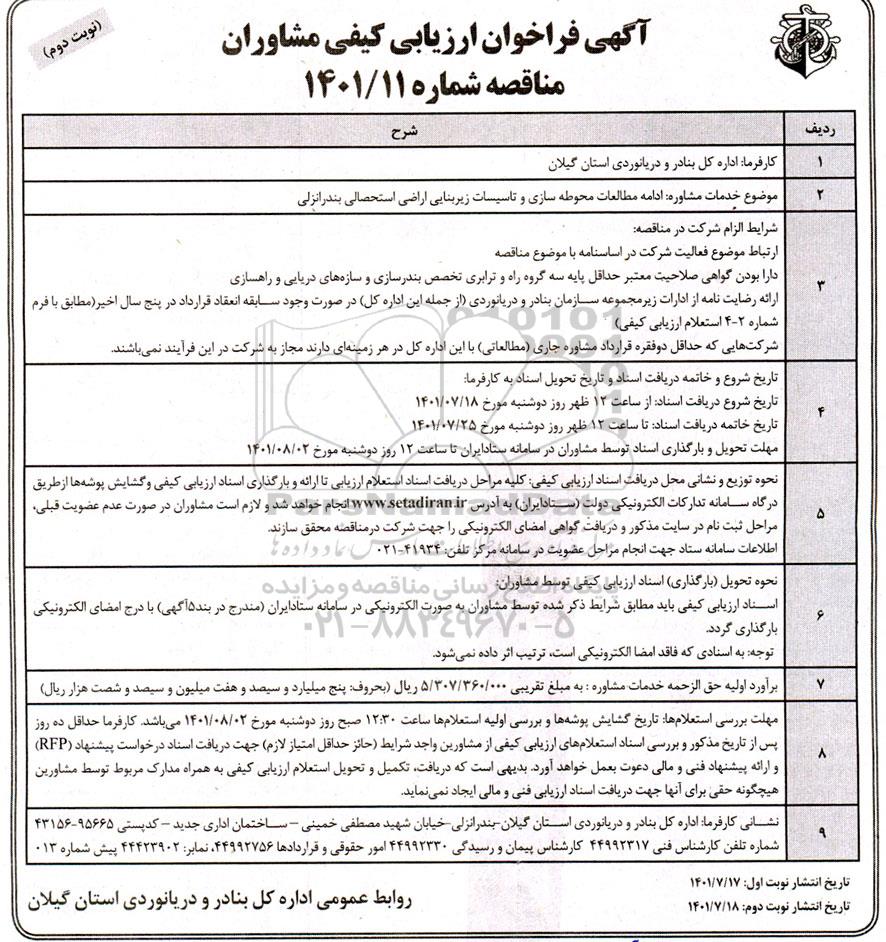 (نوبت دوم)
آگهی فراخوان ارزیابی کیفی مشاوران
مناقصه شماره ۱۴۰۱/۱۱
ردیف شرح
۱ کارفرما: اداره کل بنادر و دریانوردی استان گیلان
۲ موضوع خدمات مشاوره: ادامه مطالعات محوطه سازی و تاسیسات زیربنایی اراضی استحصالی بندرانزلی
۳ شرایط الزام شرکت در مناقصه:
ارتباط موضوع فعالیت شرکت در اساسنامه با موضوع مناقصه
دارا بودن گواهی صلاحیت معتبر حداقل پایه سه گروه راه و ترابری تخصص بندرسازی و سازه‌های دریایی و راهسازی
ارائه رضایت نامه از ادارات زیرمجموعه سازمان بنادر و دریانوردی (از جمله این اداره کل) در صورت وجود سابقه انعقاد قرارداد در پنج سال اخیر(مطابق با فرم
شماره ۲-۴ استعلام ارزیابی کیفی)
شرکت‌هایی که حداقل دوفقره قرارداد مشاوره جاری (مطالعاتی) با این اداره کل در هر زمینه‌ای دارند مجاز به شرکت در این فرآیند نمی‌باشند.
۴ تاریخ شروع و خاتمه دریافت اسناد و تاریخ تحویل اسناد به کارفرما:
تاریخ شروع دریافت اسناد: از ساعت ۱۲ ظهر روز دوشنبه مورخ ۱۴۰۱/۰۷/۱۸
تاریخ خاتمه دریافت اسناد: تا ساعت ۱۲ ظهر روز دوشنبه مورخ ۱۴۰۱/۰۷/۲۵
مهلت تحویل و بارگذاری اسناد توسط مشاوران در سامانه ستادایران تا ساعت ۱۲ روز دوشنبه مورخ ۱۴۰۱/۰۸/۰۲
۵ نحوه توزیع و نشانی محل دریافت اسناد ارزیابی کیفی: کلیه مراحل دریافت اسناد استعلام ارزیابی تا ارائه و بارگذاری اسناد ارزیابی کیفی وگشایش پوشه‌ها ازطریق
درگاه سامانه تدارکات الکترونیکی دولت (ستادایران) به آدرس www.setadiran.ir انجام خواهد شد و لازم است مشاوران در صورت عدم عضویت قبلی،
مراحل ثبت نام در سایت مذکور و دریافت گواهی امضای الکترونیکی را جهت شرکت درمناقصه محقق سازند.
اطلاعات سامانه ستاد جهت انجام مراحل عضویت در سامانه مرکز تلفن: ۴۱۹۳۴-۰۲۱
۶ نحوه تحویل (بارگذاری) اسناد ارزیابی کیفی توسط مشاوران:
اسناد ارزیابی کیفی باید مطابق شرایط ذکر شده توسط مشاوران به صورت الکترونیکی در سامانه ستادایران (مندرج در بند۵آگهی) با درج امضای الکترونیکی
بارگذاری گردد.
توجه: به اسنادی که فاقد امضا الکترونیکی است، ترتیب اثر داده نمی‌شود.
۷ برآورد اولیه حق الزحمه خدمات مشاوره : به مبلغ تقریبی ۵/۳۰۷/۳۶۰/۰۰۰ ریال (بحروف: پنج میلیارد و سیصد و هفت میلیون و سیصد و شصت هزار ریال)
۸ مهلت بررسی استعلام‌ها: تاریخ گشایش پوشه‌ها و بررسی اولیه استعلام‌ها ساعت ۱۲:۳۰ صبح روز دوشنبه مورخ ۱۴۰۱/۰۸/۰۲ می‌باشد. کارفرما حداقل ده روز
پس از تاریخ مذکور و بررسی اسناد استعلام‌های ارزیابی کیفی از مشاورین واجد شرایط (حائز حداقل امتیاز لازم) جهت دریافت اسناد درخواست پیشنهاد (RFP)
و ارائه پیشنهاد فنی و مالی دعوت بعمل خواهد آورد. بدیهی است که دریافت، تکمیل و تحویل استعلام ارزیابی کیفی به همراه مدارک مربوط توسط مشاورین
هیچگونه حقی برای آنها جهت دریافت اسناد ارزیابی فنی و مالی ایجاد نمی‌نماید.
۹ نشانی کارفرما: اداره کل بنادر و دریانوردی استان گیلان-بندرانزلی-خیابان شهید مصطفی خمینی – ساختمان اداری جدید – کدپستی ۹۵۶۶۵-۴۳۱۵۶
شماره تلفن کارشناس فنی ۴۴۹۹۲۳۱۷ کارشناس پیمان و رسیدگی ۴۴۹۹۲۳۳۰ امور حقوقی و قراردادها ۴۴۹۹۲۷۵۶، نمابر: ۴۴۴۲۳۹۰۲ پیش شماره ۰۱۳
تاریخ انتشار نوبت اول: ۱۴۰۱/۷/۱۷
تاریخ انتشار نوبت دوم: ۱۴۰۱/۷/۱۸
روابط عمومی اداره کل بنادر و دریانوردی استان گیلان
ParsNamadData
۰۲۱-۸۸۳۴۹۶۷۰-۵